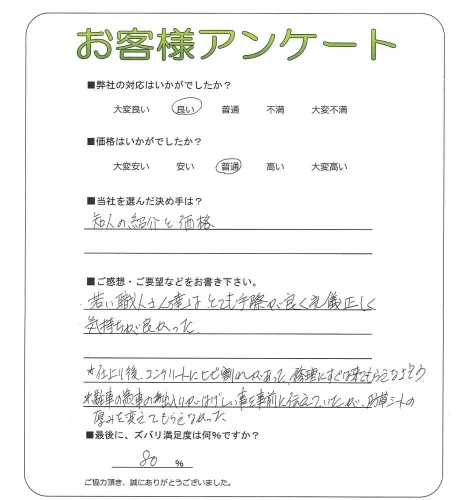 お客様アンケート
■弊社の対応はいかがでしたか？
大変良い 良い 普通 不満 大変不満
■価格はいかがでしたか？
大変安い 安い 普通 高い 大変高い
■当社を選んだ決め手は？
知人の紹介と価格
■ご感想・ご要望などをお書き下さい。
若い職人さん達はとても手際が良く礼儀正しく
気持ちが良かった。
*仕上り後、コンクリートにヒビ割れがあった、修理にすぐは来てもらえな
車の出入りがはげしい事を事前に伝えていたが、防草シートの
厚みを変えてもらえなかった。
■最後に、ズバリ満足度は何%ですか？
80 %
ご協力頂き、誠にありがとうございました。